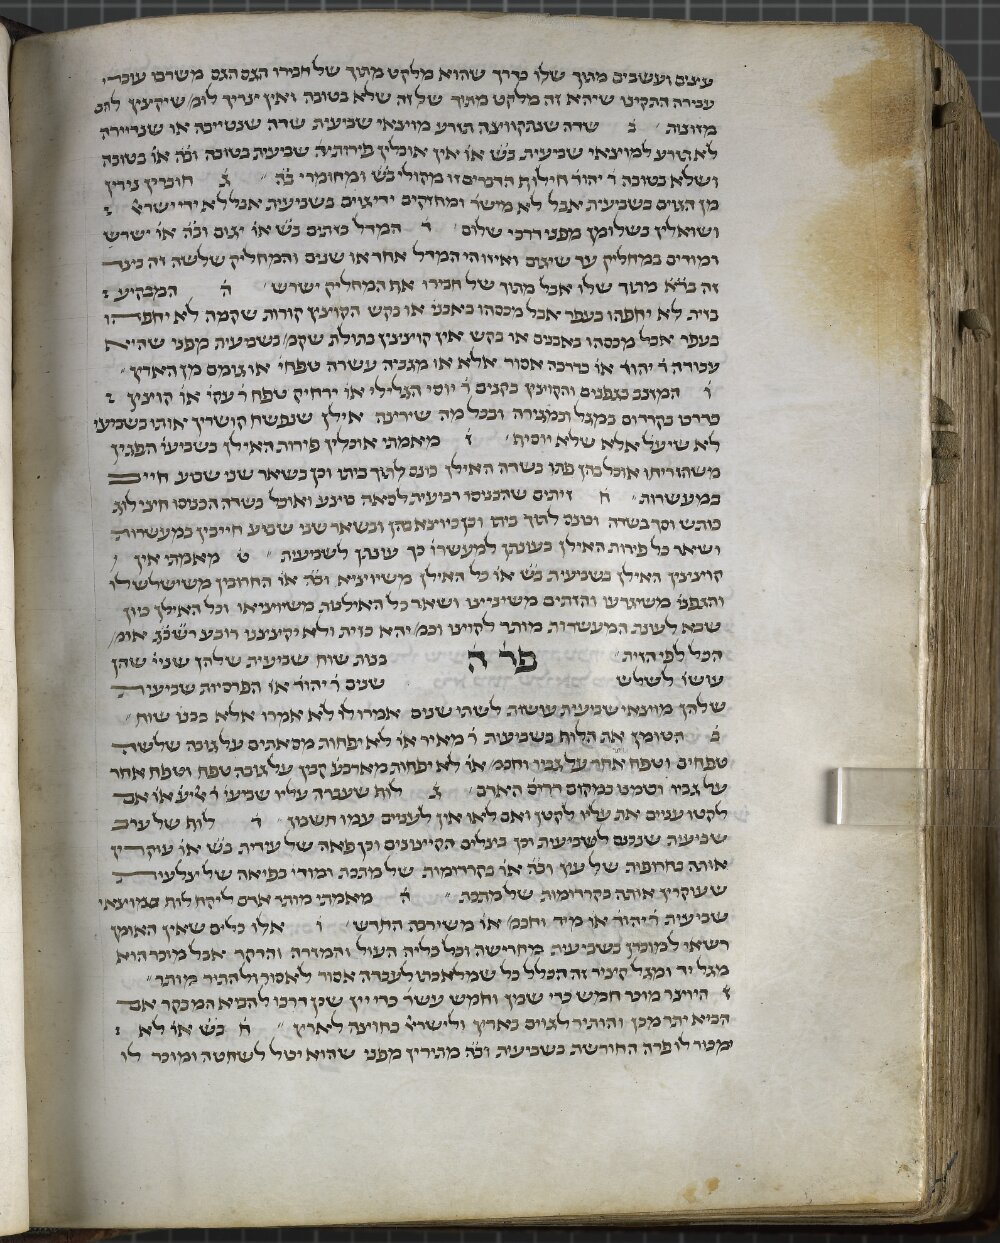 עיצים ועשבים מתוך שלו כדרך שהוא מלקט מתוך של חבירו הגס הגס משרבו עוברי
עבירה התקינו שיהא זה מלקט מתוך של זה שלא בטובה ואין צריך לומ' שיקצץ להם
מזונות ב שדה שנתקווצה תזרע מוצאי שביעית שדה שנטייבה או שנדיירה
לא תזרע למוצאי שביעית בש או אין אוכלין פירותיה שביעית בטובה ובה או בטובה
ושלא בטובה ר יהוד חילוף הדברים זו מקולי בש ומחומרי בה ג חוכרין נירין
מן הגוים בשביעית אבל לא מישר ומחזקים ידי גוים בשביעית אבל לא ידי ישר
ושואלין בשלומן מפני דרכי שלום ד המדל בזתים בש או יגום ובה או ישרש
ומודים במחליק עד שיגום ואיזו הי המדל אחד או שנים והמחליק שלשה זה בצד
זה במא מתוך שלו אבל מתוך של חבירו אף המחליק ישרש ה המבקיע
בזית לא יחפהו בעפר אבל מכסהו באבני או בקש הקוצץ קורות שקמה לא יחפהו
בעפר אבל מכסהו באבנים או בקש אין קוצצין בתולת שקמ' בשביעית מפני שהיא
עבודה ר יהוד או כדרכה אסור אלא או מגביה עשרה טפחי או גומם מן הארץ
ו המזנב בגפנים והקוצץ בקנים ר יוסי הגלילי או ירחיק טפח ר עקי או קוצץ
כדרכו בקרדום במגל ובמגירה ובכל מה שירצה אילן שנפשח קושרין אותו בשביעי
לא שיעל אלא שלא יוסיף ז מאמתי אוכלין פירות האילן בשביעי הפגין
משהזריחו אוכל בהן פתו בשדה האילן כונס לתוך ביתו וכן בשאר שני שבוע חייב
במעשרות ח זיתים שהכניסו רביעית לסאה פוצע ואוכל בשדה הכניסו חצי לוג
כותש וסך בשדה וכונס לתוך ביתו וכן כיוצא בהן ובשאר שני שבוע חייבין במעשרות
ושאר כל פירות האילן בעונתן למעשרו כך עונתן לשביעית ט מאמתי אין
קוצצין האילן בשביעית בש או כל האילן משיוציא ובה או החרובין משישלשלו
והגפני משיגרעו והזתים משיניצו ושאר כל האילנות משיוציאו וכל האילן כיון
שבא לעונת המעשרות מותר לקוצו וכמ' יהא בזית ולא יקיצצנו רובע רשבג אומ'
הכל לפי הזית פר ה בנות שוח שביעית שלהן שניי שהן
עושו לשלש שנים ר יהוד או הפרסיות שביעית
שלהן מוצאי שביעית עושות לשתי שנים אמרו לו לא אמרו אלא בבנו שוח
ב הטומן את הלוף בשביעית ר מאיר או לא יפחות מסאתים על גובה שלשה
טפחים וטפח אחר על גביו וחכמ' או לא יפחות מארבע קבין על גובה טפח וטפח אחר
על גביו וטמנו במקום דריס הארם ג לוף שעברה עליו שביעי ר אליע או אם
לקטו עניים את עליו לקטן ואם לאו אין לעניים עמו חשבון ד לוף של ערב
שביעית שנכנס לשביעית וכן בצלים הקייצונים וכן פאה של עידית בש או עוקרין
אותה בחרופות של עץ ובה או בקרדומות של מתכת ומודי בפיאה של צלעות
שעוקרין אותה בקרדומות של מתכת ה מאמתי מותר אדם ליקח לוף במוצאי
שביעית ר יהוד או מיד וחכמ' או משירבה החדש ו אלו כלים שאין האומן
רשאי למוכרן בשביעית מחרישה וכל כליה העול והמזרה והדקר אבל מוכר הוא
מגל יד ומגל קציר זה הכלל כל שמלאכתו לעברה אסור לאסור ולהתיר מותר
ז היוצר מוכר חמש כדי שמן וחמש עשר כדי יין שכן דרכו להביא המבקר אם
הביא יתר מכן והותיר לגוים בארץ ולישר בחוצה לארץ ח בש או לא
ימכור לו פרה החורשת בשביעית ובה מתירין מפני שהוא יכול לשחטה ומוכר לו